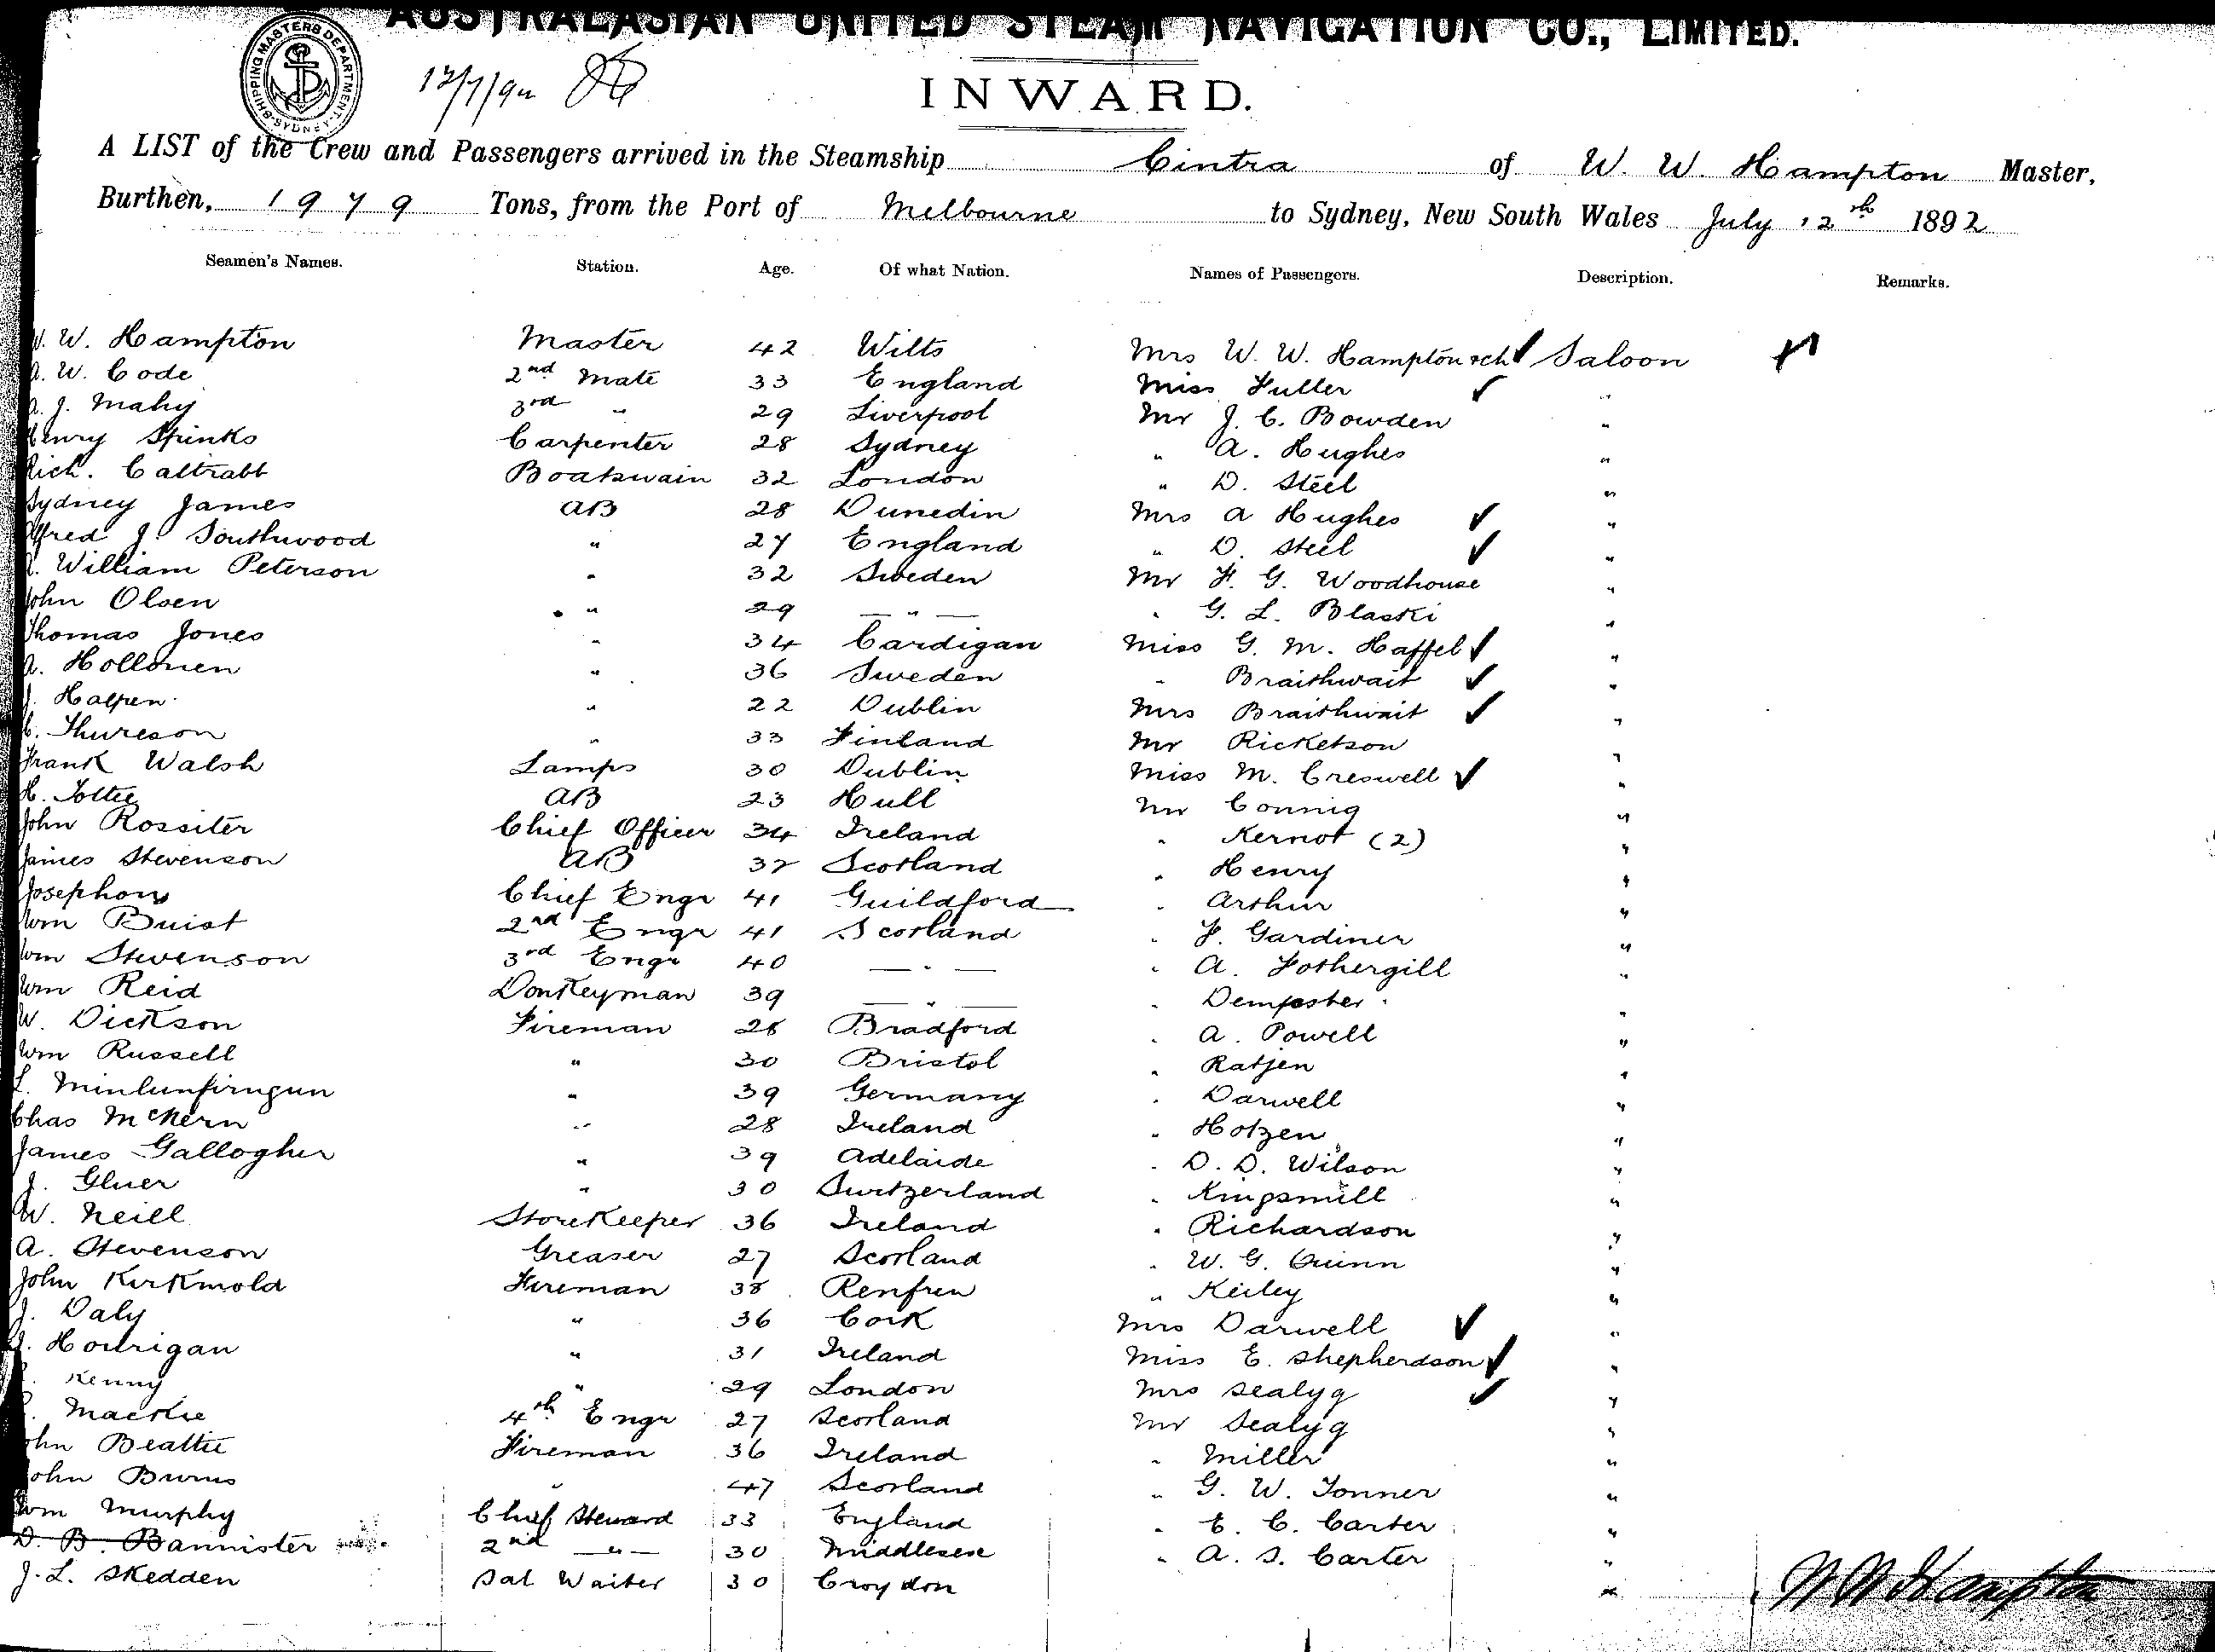 AUSTRALASIAN UNITED STEAM NAVIGATION CO., LIMITED.
SHIPPING MASTERS DEPARTMENT SYDNEY
12/7/92
INWARD.
A LIST of the Crew and Passengers arrived in the Steamship Cintra of W. W. Hampton Master,
Burthen, 1979 Tons, from the Port of Melbourne to Sydney, New South Wales July 12th 1892
Seamen's Names. Station. Age. Of what Nation. Names of Passengers. Description. Remarks.
W. W. Hampton Master 42 Wilts Mrs W. W. Hampton & ch Saloon
W. Code 2nd Mate 33 England Miss Fuller "
J. Mahy 3rd " 29 Liverpool Mr J. C. Bowden "
Henry Spinks Carpenter 28 Sydney " A. Hughes "
Rich. Caltrabt Boatswain 32 London " D. Steel "
Sydney James AB 28 Dunedin Mrs A Hughes "
Alfred J. Southwood " 27 England " D. Steel "
William Peterson " 32 Sweden Mr F. G. Woodhouse "
John Olsen " 29 — " — " G. L. Blaski "
Thomas Jones " 34 Cardigan Miss G. M. Haffel "
A. Hollonen " 36 Sweden " Braithwait "
J. Halpen " 22 Dublin Mrs Braithwait "
C. Thureson " 33 Finland Mr Ricketson "
Frank Walsh Lamps 30 Dublin Miss M. Creswell "
H. Tottie AB 23 Hull Mr Connig "
John Rossiter Chief Officer 34 Ireland " Kernot (2) "
James Stevenson AB 37 Scotland " Henry "
Josephons Chief Engr 41 Guildford " Arthur "
Wm Buist 2nd Engr 41 Scotland " F. Gardiner "
Wm Stevenson 3rd Engr 40 — " — " A. Fothergill "
Wm Reid Donkeyman 39 — " — " Dempster "
W. Dickson Fireman 28 Bradford " A. Powell "
Wm Russell " 30 Bristol " Ratjen "
L. Minlunfirngun " 39 Germany " Darwell "
Chas McKern " 28 Ireland " Hotzen "
James Gallogher " 39 Adelaide " D. D. Wilson "
J. Gluer " 30 Switzerland " Kingsmill "
W. Neill Storekeeper 36 Ireland " Richardson "
A. Stevenson Greaser 27 Scotland " W. G. Quinn "
John Kirkmold Fireman 38 Renfrew " Keiley "
J. Daly " 36 Cork Mrs Darwell "
J. Hourigan " 31 Ireland Miss E. Shepherdson "
Kenny " 29 London Mrs Sealyg "
Mackie 4th Engr 27 Scotland Mr Sealyg "
John Beattie Fireman 36 Ireland " Miller "
John Burns " 47 Scotland " G. W. Tonner "
Wm Murphy Chief Steward 33 England " E. C. Carter "
D. B. Bannister 2nd — " — 30 Middlesex " A. S. Carter "
J. L. Skedden Sal Waiter 30 Croydon "
W W Hampton